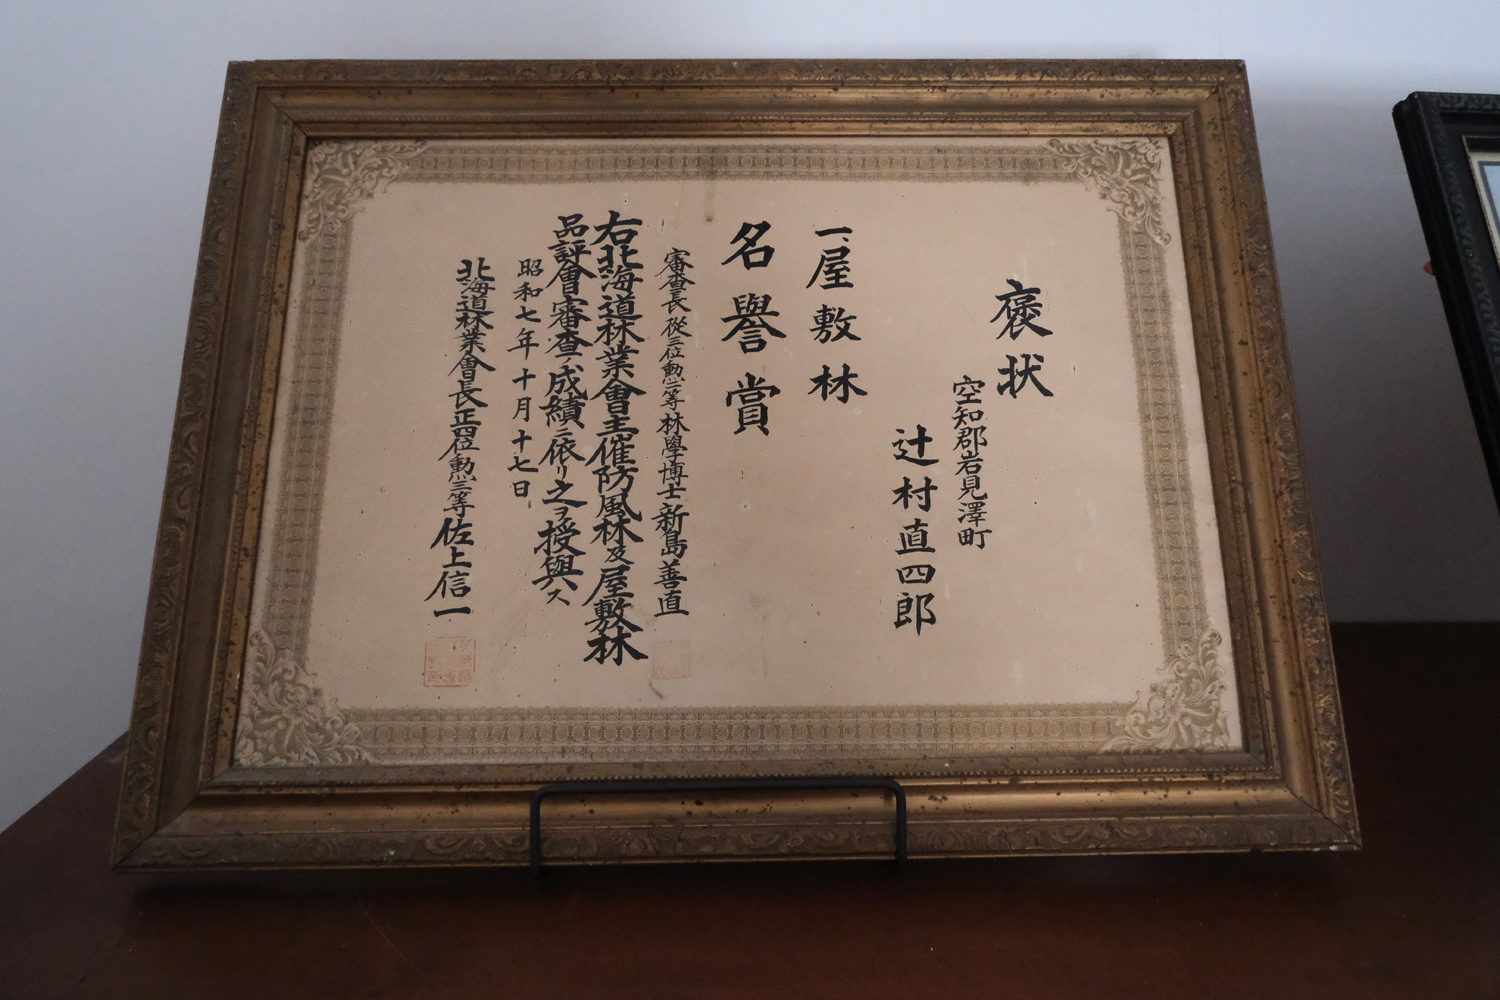 褒状
空知郡岩見澤町
辻村直四郎
一、屋敷林
名譽賞
審査長從三位勲二等林學博士新島善直
右北海道林業會主催防風林及屋敷林
品評會審査ノ成績ニ依リ之ヲ授與ス
昭和七年十月十七日
北海道林業會長正四位勲三等佐上信一